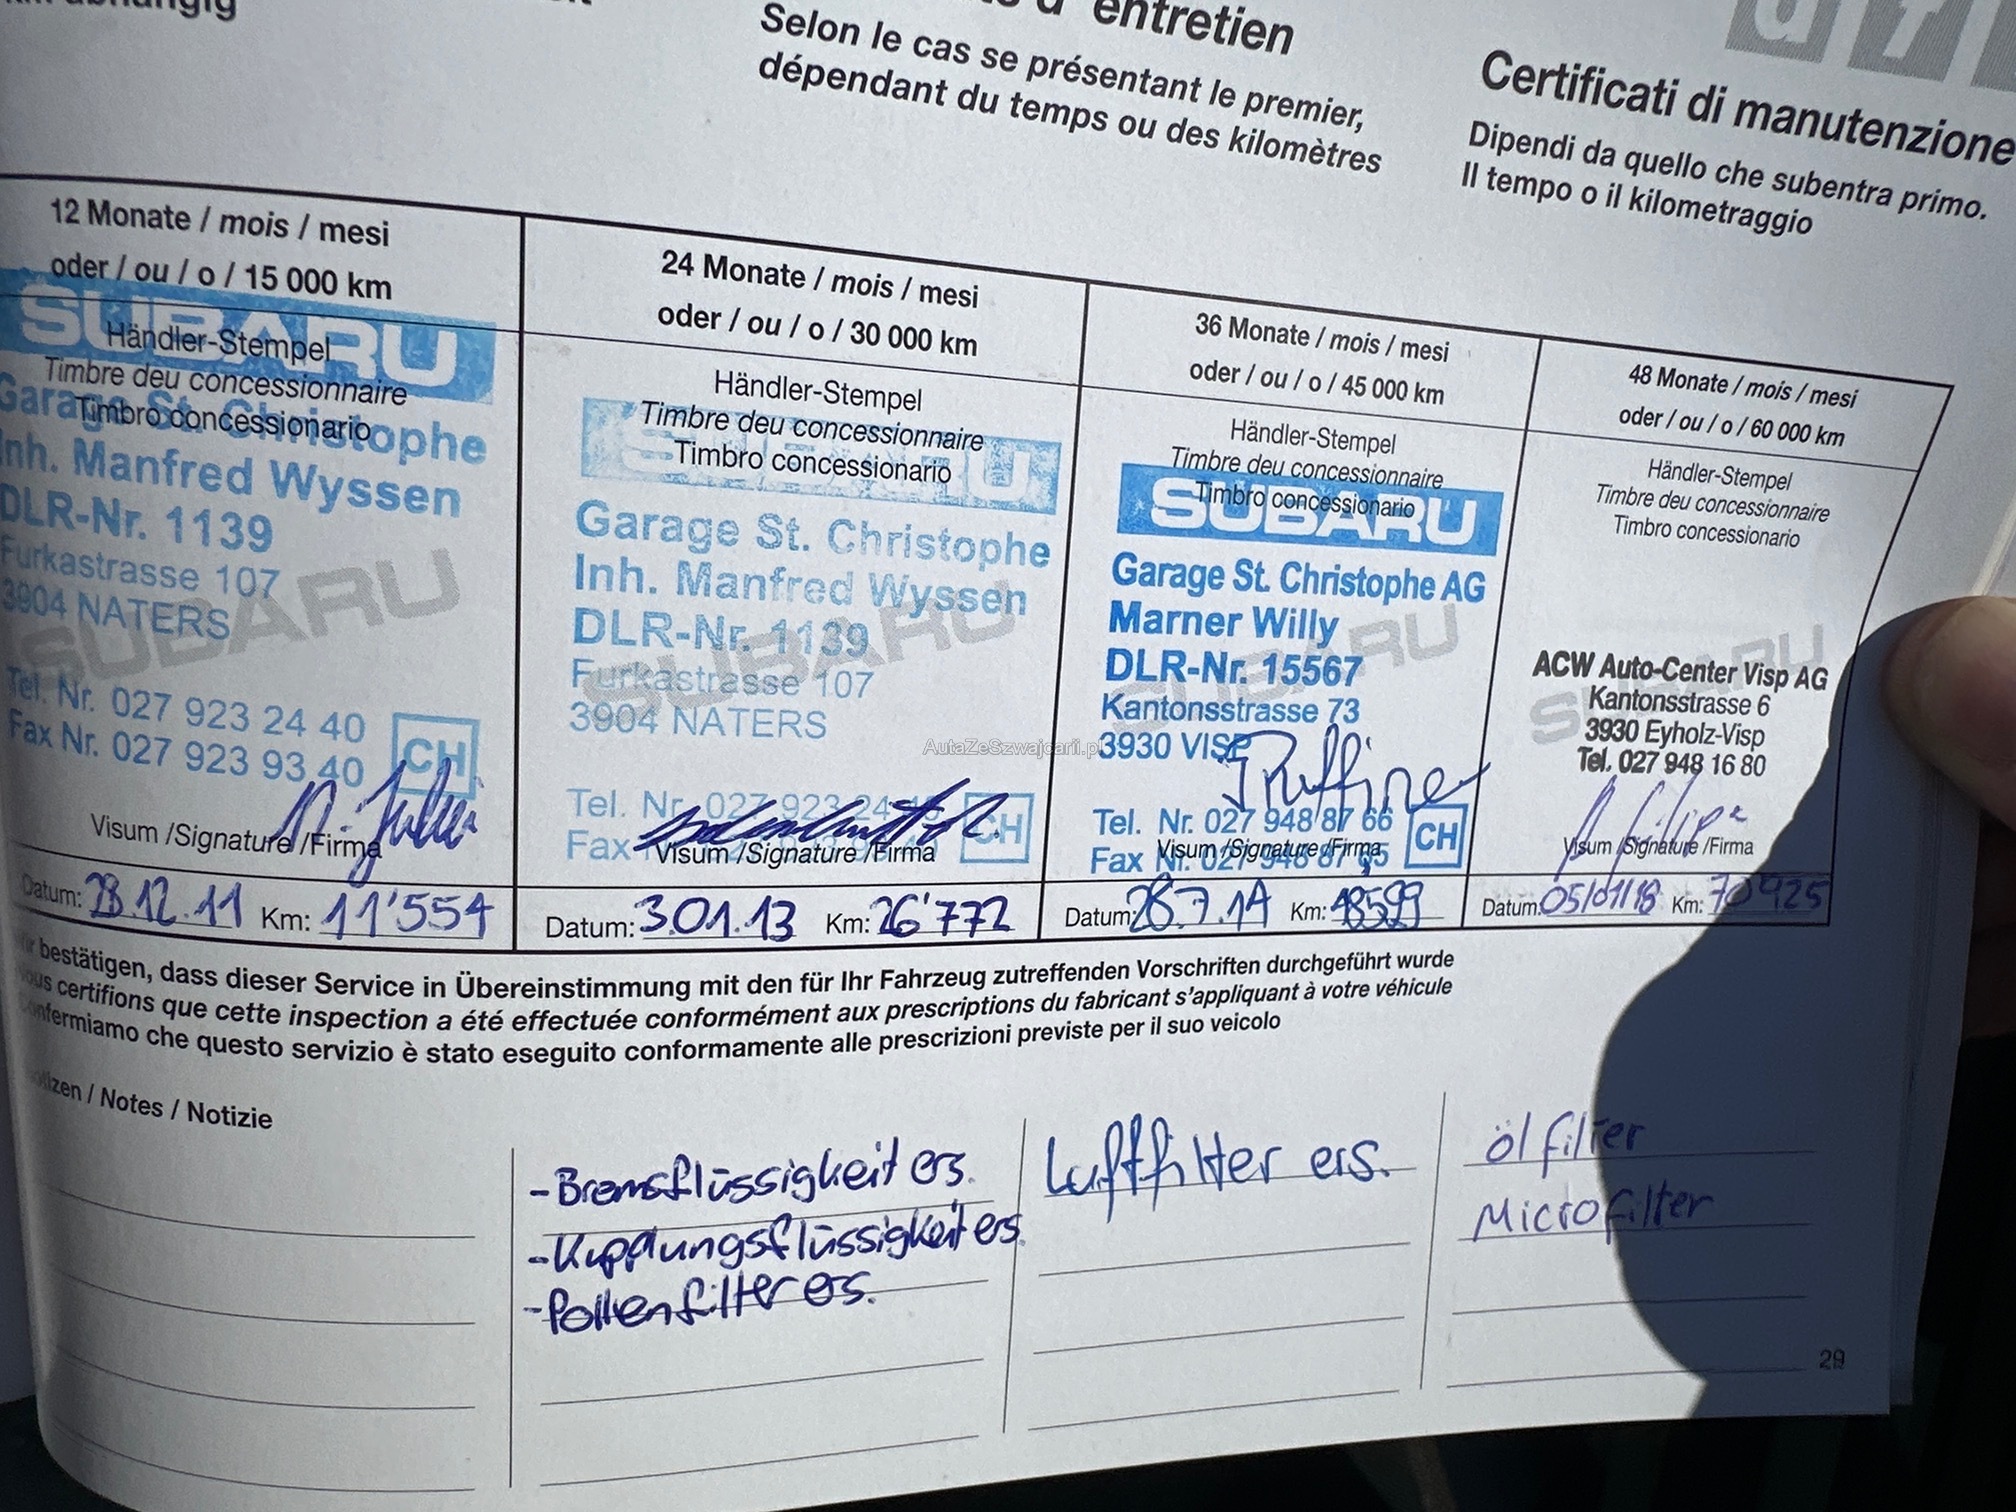 d' entretien
Selon le cas se présentant le premier,
dépendant du temps ou des kilomètres
Certificati di manutenzione
Dipendi da quello che subentra primo.
Il tempo o il kilometraggio
12 Monate / mois / mesi
oder / ou / o / 15 000 km
SUBARU
Händler-Stempel
Timbre deu concessionnaire
Timbro concessionario
Garage St. Christophe
Inh. Manfred Wyssen
DLR-Nr. 1139
Furkastrasse 107
3904 NATERS
SUBARU
Tel. Nr. 027 923 24 40
Fax Nr. 027 923 93 40
CH
Visum /Signature /Firma
Datum: 28.12.11 Km: 11'554
24 Monate / mois / mesi
oder / ou / o / 30 000 km
Händler-Stempel
Timbre deu concessionnaire
Timbro concessionario
SUBARU
Garage St. Christophe
Inh. Manfred Wyssen
DLR-Nr. 1139
SUBARU
Furkastrasse 107
3904 NATERS
Tel. Nr. 027 923 24
Fax
CH
Visum /Signature /Firma
Datum: 3.01.13 Km: 26'772
36 Monate / mois / mesi
oder / ou / o / 45 000 km
Händler-Stempel
Timbre deu concessionnaire
Timbro concessionario
SUBARU
Garage St. Christophe AG
Marner Willy
DLR-Nr. 15567
SUBARU
Kantonsstrasse 73
3930 VISP
Tel. Nr. 027 948 87 66
Fax Nr. 027 948 87 65
CH
Visum /Signature /Firma
Datum: 28.7.14 Km: 48599
48 Monate / mois / mesi
oder / ou / o / 60 000 km
Händler-Stempel
Timbre deu concessionnaire
Timbro concessionario
ACW Auto-Center Visp AG
SUBARU
Kantonsstrasse 6
3930 Eyholz-Visp
Tel. 027 948 16 80
Visum /Signature /Firma
Datum: 05/01/18 Km: 70925
AutaZeSzwajcarii.pl
bestätigen, dass dieser Service in Übereinstimmung mit den für Ihr Fahrzeug zutreffenden Vorschriften durchgeführt wurde
certifions que cette inspection a été effectuée conformément aux prescriptions du fabricant s'appliquant à votre véhicule
che questo servizio è stato eseguito conformamente alle prescrizioni previste per il suo veicolo
/ Notes / Notizie
-Bremsflüssigkeit ers.
-Kupplungsflüssigkeit ers.
-Pollenfilter ers.
Luftfilter ers.
ölfilter
Microfilter
29